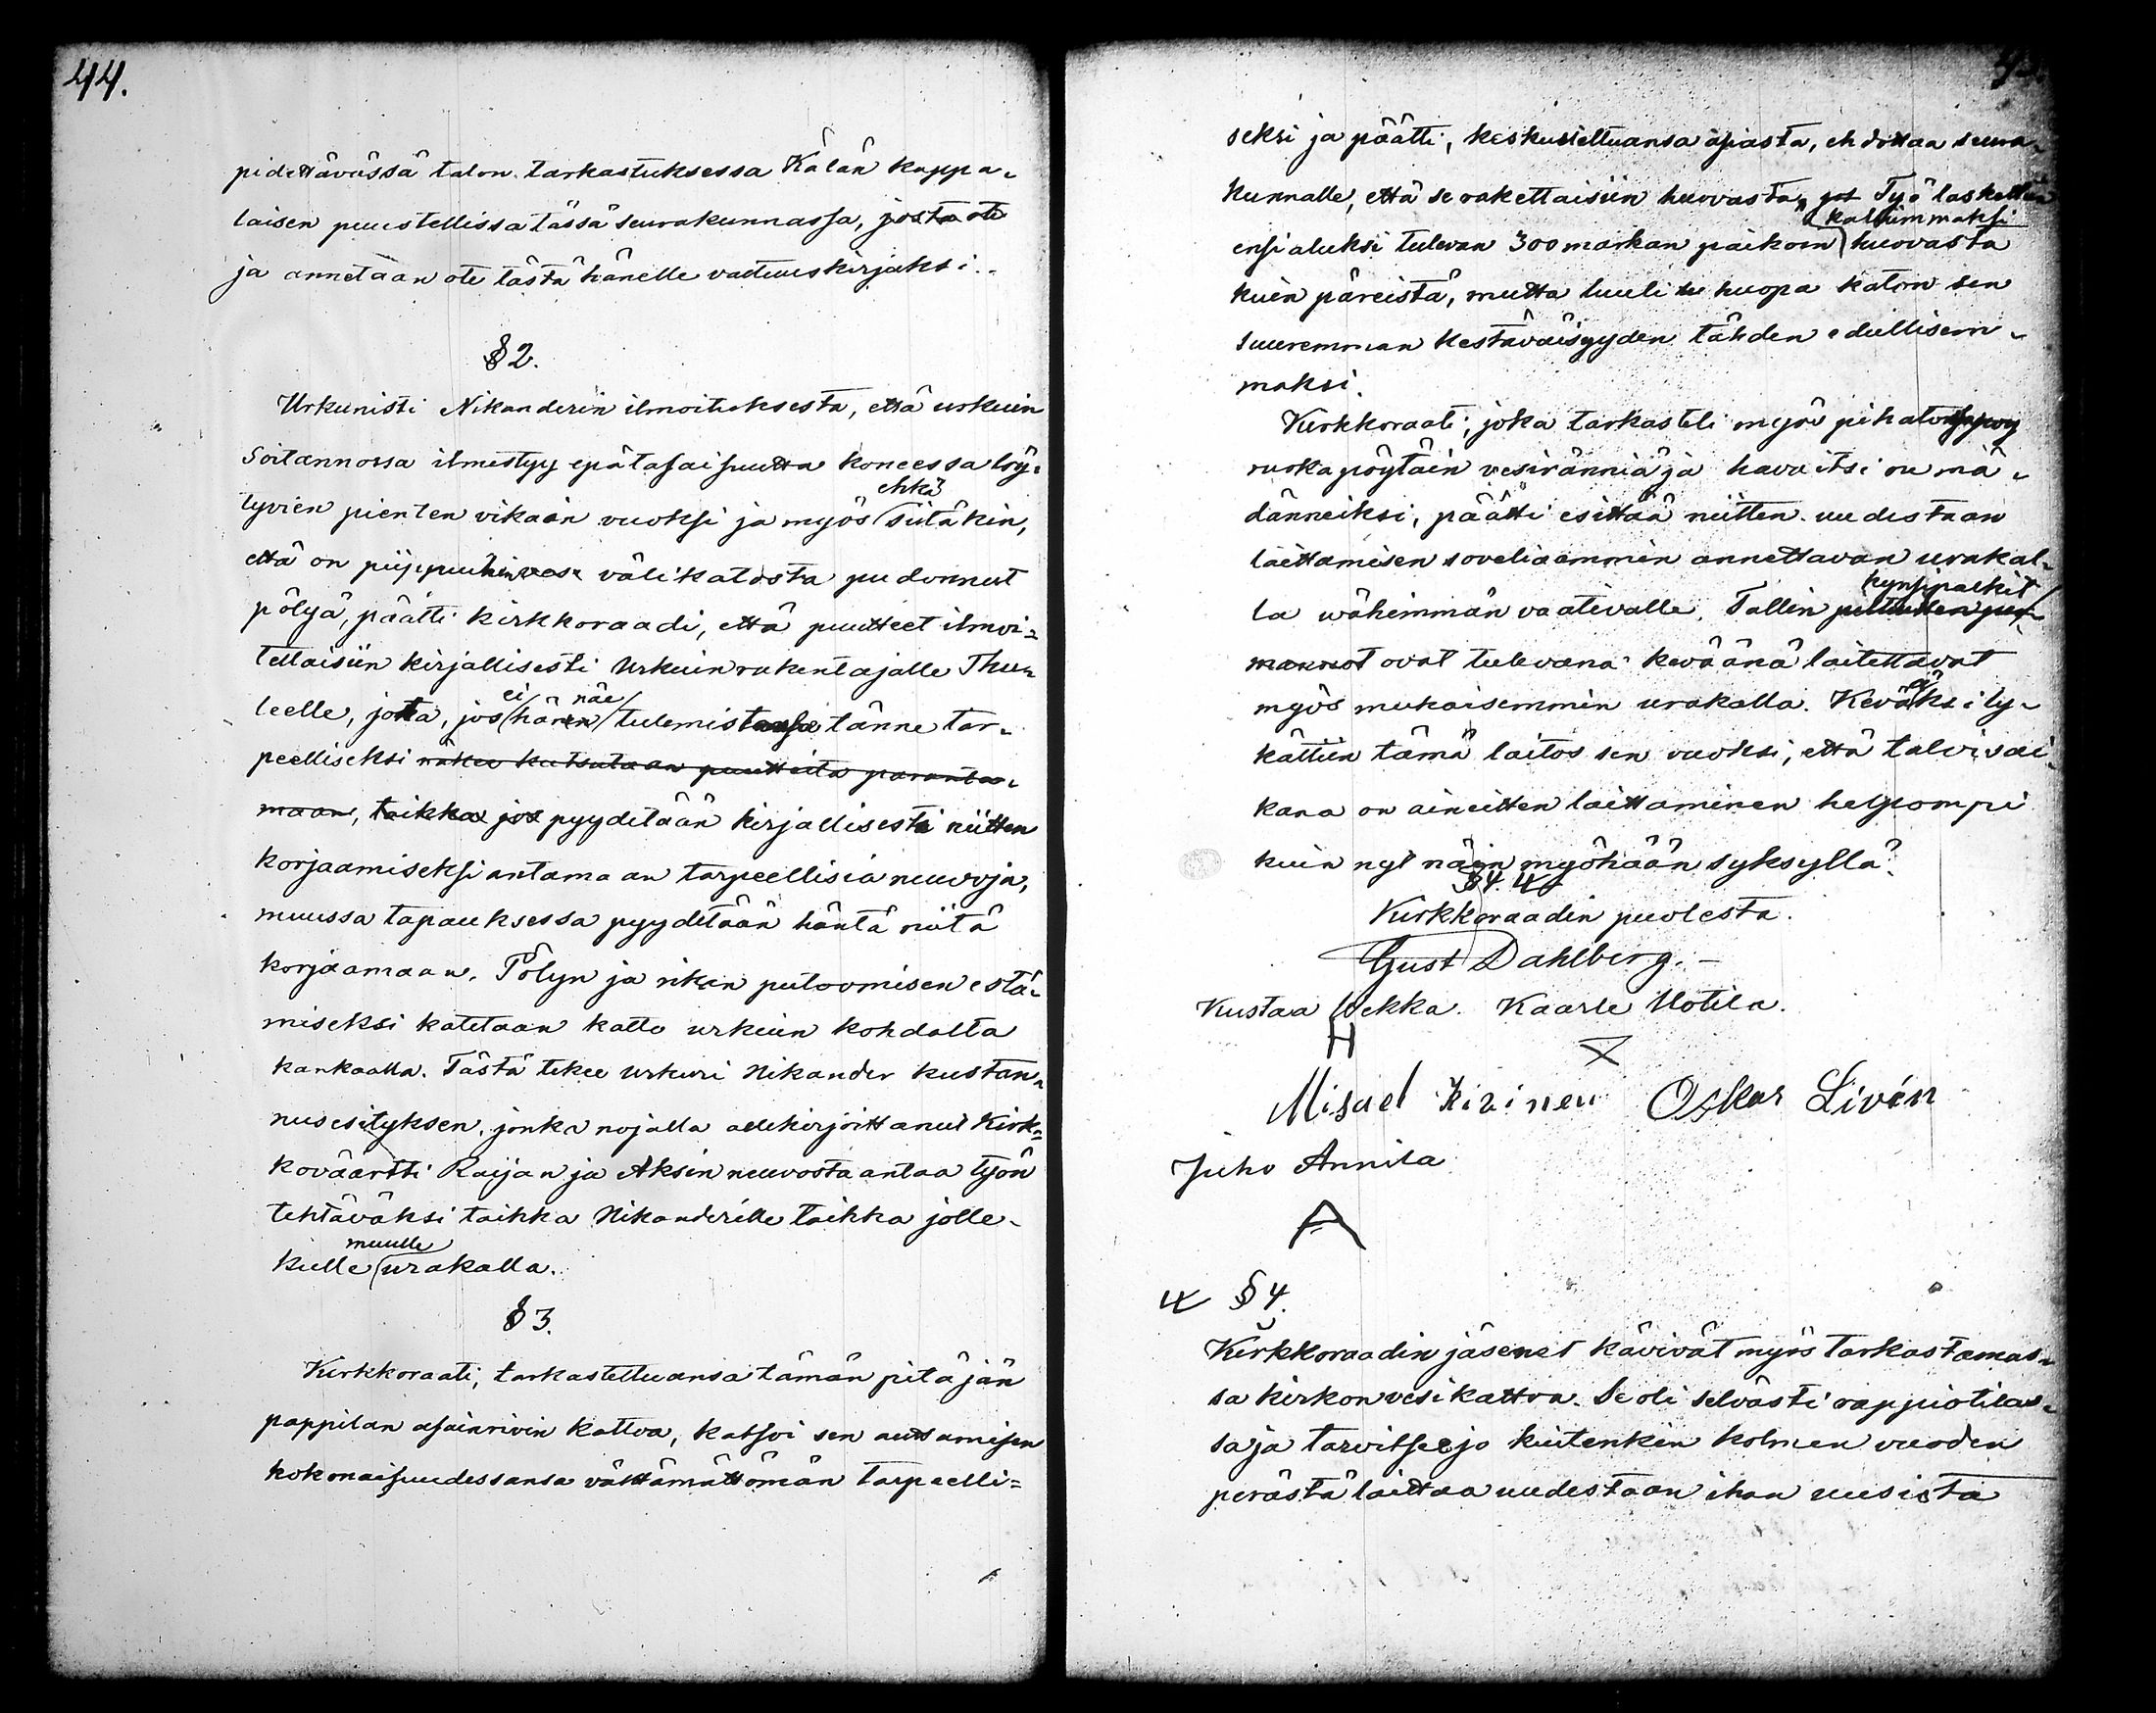 44.
pidettävässä talon tarkastuksessa Kälän kappa-
laisen puustellissa tässä seurakunnassa, josta ote
ja annetaan ote tästä hänelle valtuuskirjaksi.
§ 2.
Urkunisti Nikanderin ilmoituksesta, että urkuin
soitannossa ilmestyy epätasaisuutta koneessa löy-
ehkä
tyvien pienten vikain vuoksi ja myös siitäkin,
että on piippuihin välikatosta pudonnut
pölyä, päätti kirkkoraadi, että puutteet ilmoi-
tettaisiin kirjallisesti Urkuinrakentajalle Thu-
ei näe
leelle, jota, jos hän tulemistansa tänne tar-
peelliseksi näkee kutsutaan puutteita paranta-
maan, taikka jos pyydetään kirjallisesti niitten
korjaamiseksi antamaan tarpeellisia neuvoja,
muussa tapauksessa pyydetään häntä niitä
korjaamaan. Pölyn ja rikan putoomisen estä-
miseksi katetaan katto urkuin kohdalta
kankaalla. Tästä tekee Urkuri Nikander kustan-
nusesityksen, jonka nojalla allekirjoittanut Kirk-
koväartti Raijan ja Aksin neuvosta antaa työn
tehtäväksi taikka Nikanderille taikka jolle-
muulle
kulle urakalla.
§ 3.
Kirkkoraati, tarkastettuansa tämän pitäjän
pappilan asuinrivin kattoa, katsoi sen
kokonaisuudessansa välttämättömän tarpeelli-
seksi ja päätti, keskusteltuansa asiasta, ehdottaa seura-
kunnalle, että se rakettaisiin huovasta, jos Työ laskettiin
kalliimmaksi
ensialuksi tulevan 300 markan paikoin huovasta
kuin päreistä, mutta luuli huopa katon sen
suuremman kestäväisyyden tähden edullisem-
maksi.
Kirkkoraati, joka tarkasteli myös pihaton
ruokapöytäin vesiränniä ja havaitsi ne mä-
dänneiksi, päätti esittää niitten uudestaan
laittamisen soveliaammin annettavan urakal-
kynsipalkit
la wähimmän vaativalle. Tallin
ovat tulevana keväänä laitettavat
myös mukaisemmin urakalla. Kevääksi ly-
kättiin tämä laitos sen vuoksi, että talvisai-
kana on aineitten laittaminen helpompi
kuin nyt näin myöhään syksyllä.
§ 4.
Kirkkoraadin puolesta.
Gust Dahlberg.
Kustaa Uekka. Kaarle Uotila.
H
Misael Kirinen Oskar Livén
Juho Annila
A
§ 4.
Kirkkoraadin jäsenet kävivät myös tarkastamas-
sa kirkon vesikattoa. Se oli selvästi rappiotilas-
sa ja tarvitsee jo kuitenkin kolmen vuoden
perästä laittaa uudestaan ihan uusista